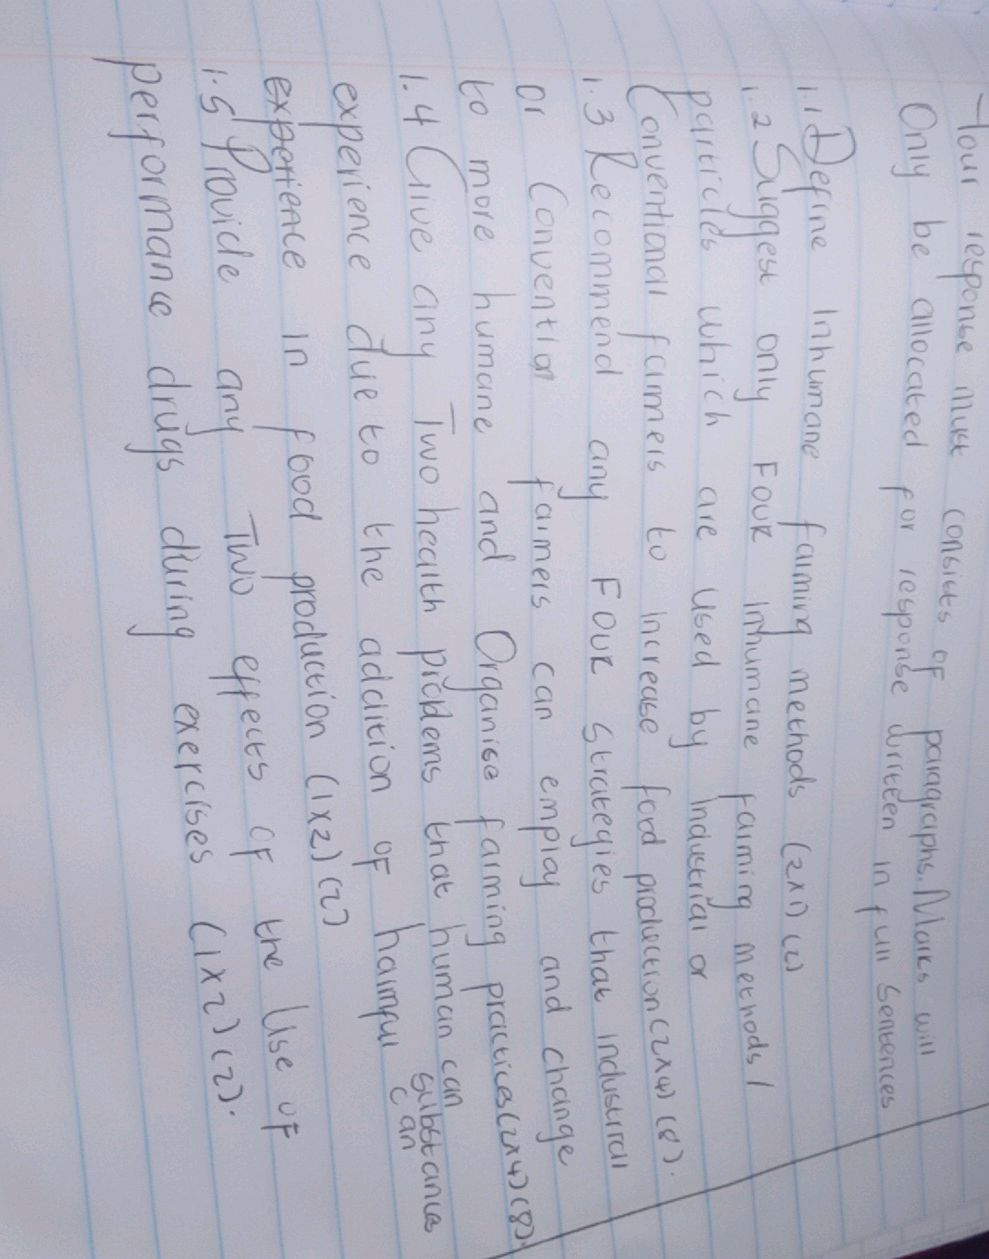 Your response must consists of paragraphs. Marks will
Only be allocated for response written in full sentences
1.1 Define Inhumane farming methods (2x1) (2)
1.2 Suggest only FOUR inhumane farming methods/
particles which are used by industrial or
Conventional farmers to increase food production (2x4) (8).
1.3 Recommend any FOUR strategies that industrial
or Convention farmers can employ and change
to more humane and Organise farming practices (2x4) (8).
1.4 Give any Two health problems that human can
experience due to the addition of harmful substances can
experience in food production (1x2) (2)
1.5 Provide any Two effects of the use of
performance drugs during exercises (1x2) (2).